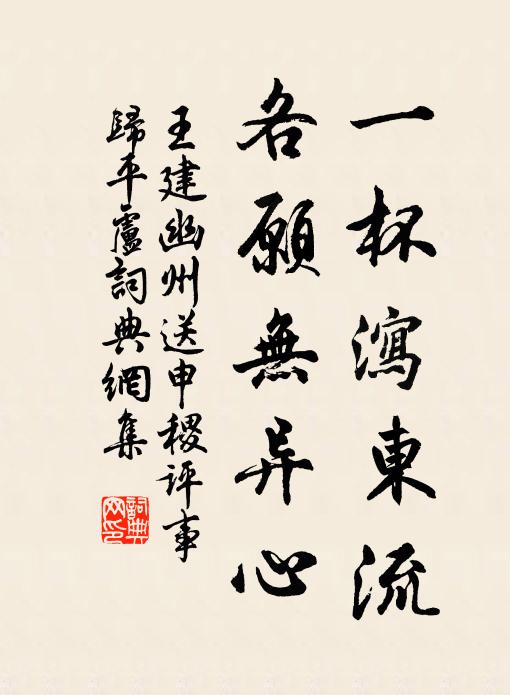 一杯瀉東流
各願無异心
王建幽州送申稷評事
歸平盧詞典網集
詞典
网印